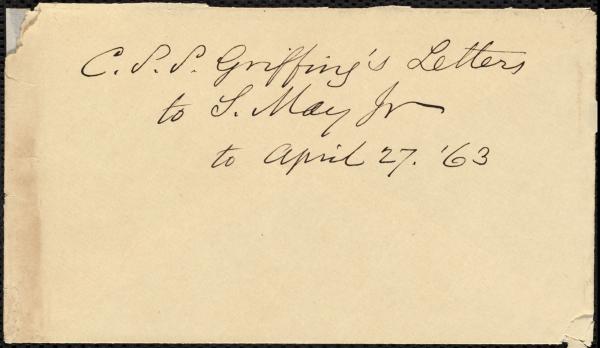 C. S. S. Griffing's Letters
to S. May Jr
to April 27. '63